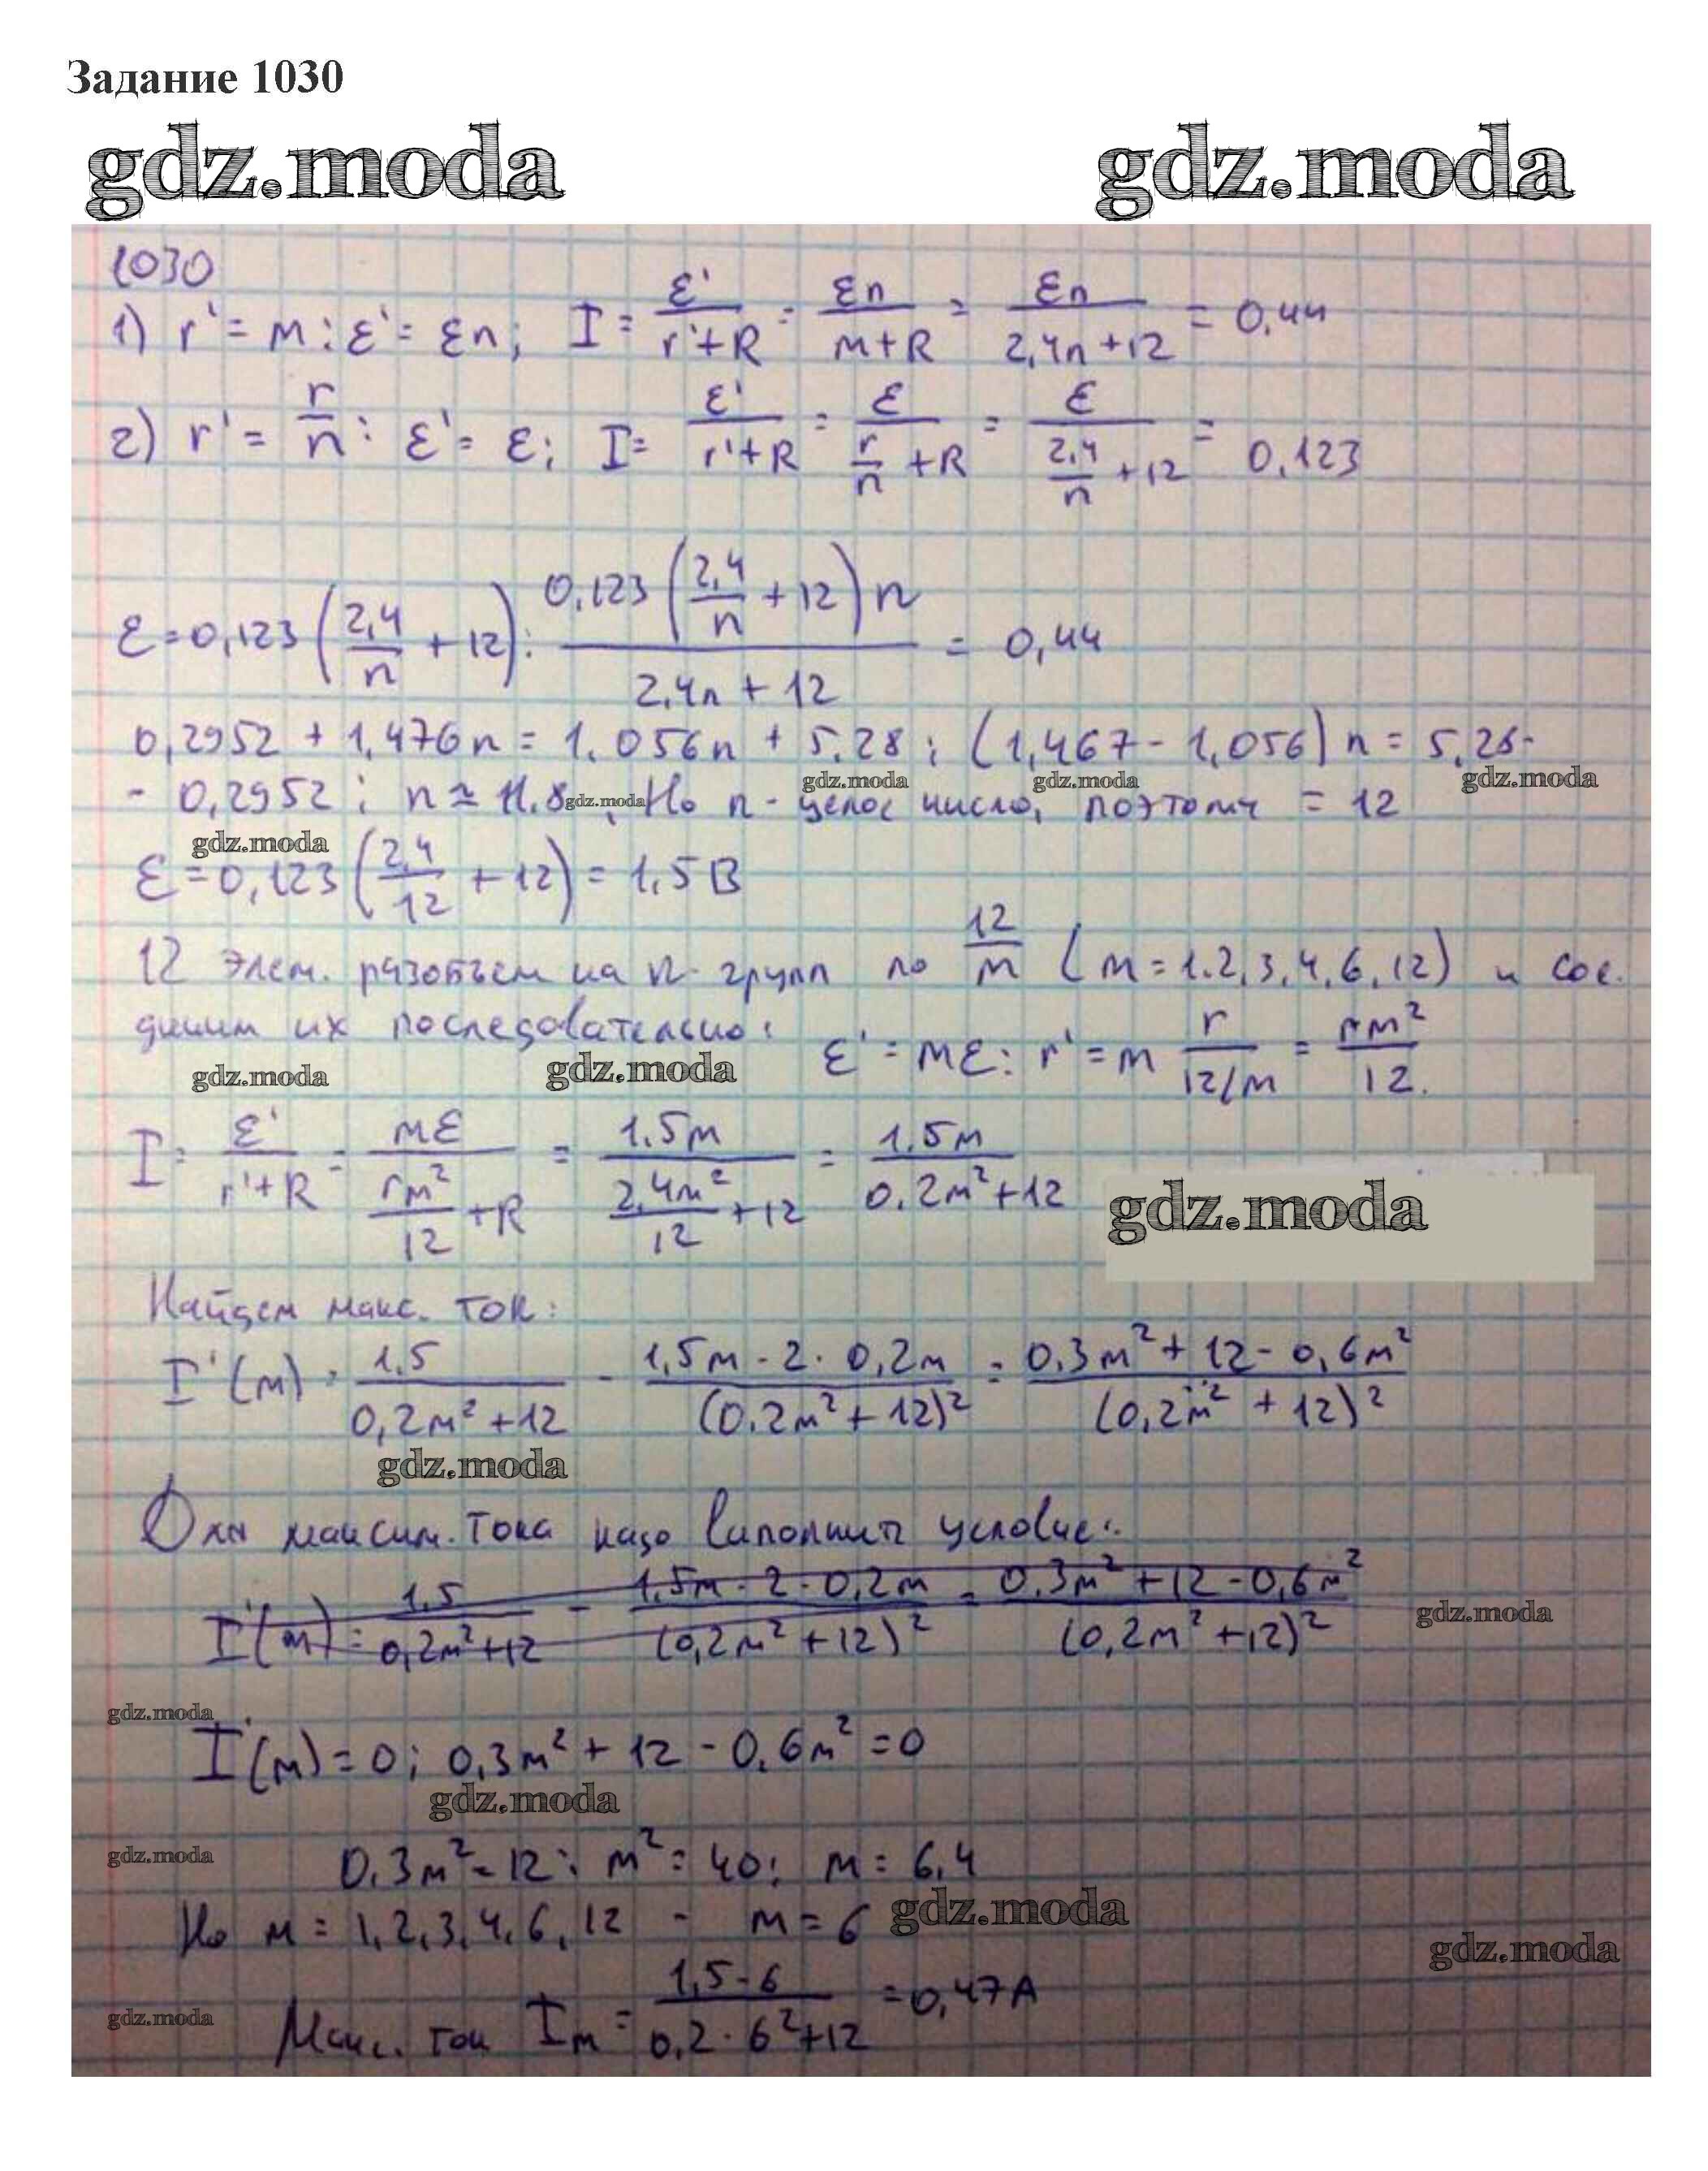 Задание 1030
gdz.moda gdz.moda
1030
1) r' = rn; ε' = εn; I = ε'/(r'+R) = εn/(rn+R) = εn/(2,4n+12) = 0,44
2) r' = r/n; ε' = ε; I = ε'/(r'+R) = ε/(r/n +R) = ε/(2,4/n +12) = 0,123
ε = 0,123 (2,4/n + 12); 0,123 (2,4/n + 12) n / (2,4n + 12) = 0,44
0,2952 + 1,476n = 1.056n + 5,28; (1,467 - 1,056) n = 5,28-
gdz.moda gdz.moda gdz.moda
- 0,2952; n ≈ 11.8 gdz.moda, Но n - целое число, поэтому = 12
gdz.moda
ε = 0,123 (2,4/12 + 12) = 1,5 В
12 элем. разобъем на n групп по 12/m (m = 1.2,3,4,6,12) и сое.
диним их последовательно: ε' = mε; r' = m r/(12/m) = rm²/12.
gdz.moda gdz.moda
I = ε'/(r'+R) = mε/(rm²/12 +R) = 1.5m/(2,4m²/12 +12) = 1.5m/(0.2m²+12)
gdz.moda
Найдем макс. ток:
I'(m) = 1.5/(0,2m²+12) - 1,5m · 2 · 0,2m/(0.2m²+12)² = (0.3m² + 12 - 0,6m²)/(0,2m² + 12)²
gdz.moda
Для максим. тока надо выполнить условие:
I'(m) = 1,5/(0,2m²+12) - 1,5m · 2 · 0,2m/(0,2m²+12)² = (0,3m² + 12 - 0,6m²)/(0,2m² +12)²
gdz.moda
gdz.moda
I'(m) = 0; 0,3m² + 12 - 0,6m² = 0
gdz.moda
gdz.moda
0,3m² = 12; m² = 40; m = 6,4
Но m = 1,2,3,4,6,12 - m = 6 gdz.moda
gdz.moda
Макс. ток Im = 1,5·6/(0.2 · 6²+12) = 0,47A
gdz.moda